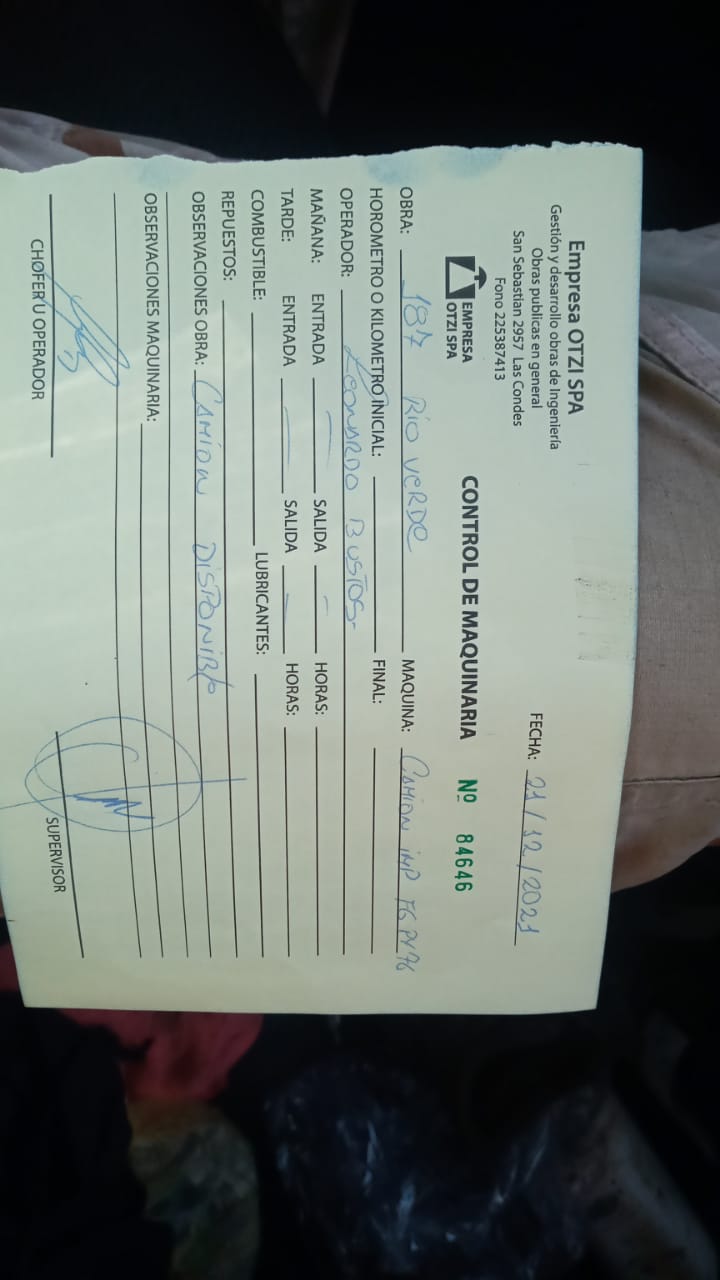 Empresa OTZI SPA
Gestión y desarrollo obras de Ingeniería
Obras publicas en general
San Sebastian 2957 Las Condes
Fono 225387413
FECHA: 21/12/2021
EMPRESA
OTZI SPA
CONTROL DE MAQUINARIA Nº 84646
OBRA: 187 Rio Verde MAQUINA: Camion imp FGPY76
HOROMETRO O KILOMETRO INICIAL: FINAL:
OPERADOR: Leonardo Bustos
MAÑANA: ENTRADA — SALIDA — HORAS:
TARDE: ENTRADA — SALIDA — HORAS:
COMBUSTIBLE: LUBRICANTES:
REPUESTOS:
OBSERVACIONES OBRA: Camion Disponible
OBSERVACIONES MAQUINARIA:
CHOFER U OPERADOR SUPERVISOR